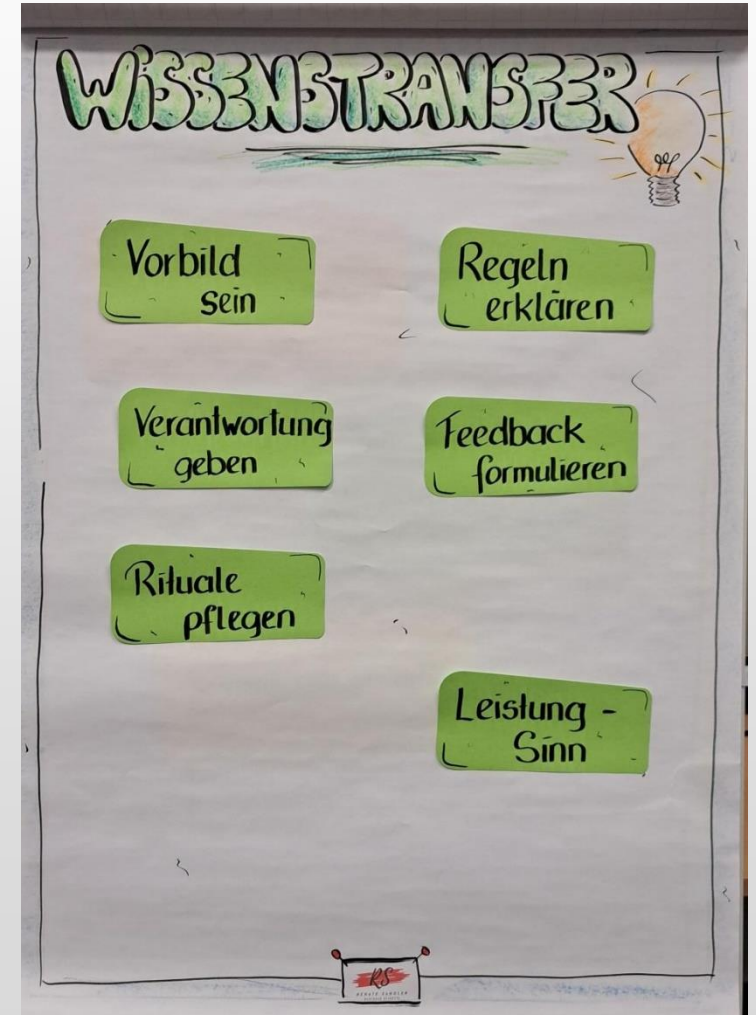 WISSENSTRANSFER
Vorbild
sein
Regeln
erklären
Verantwortung
geben
Feedback
formulieren
Rituale
pflegen
Leistung -
Sinn
RS